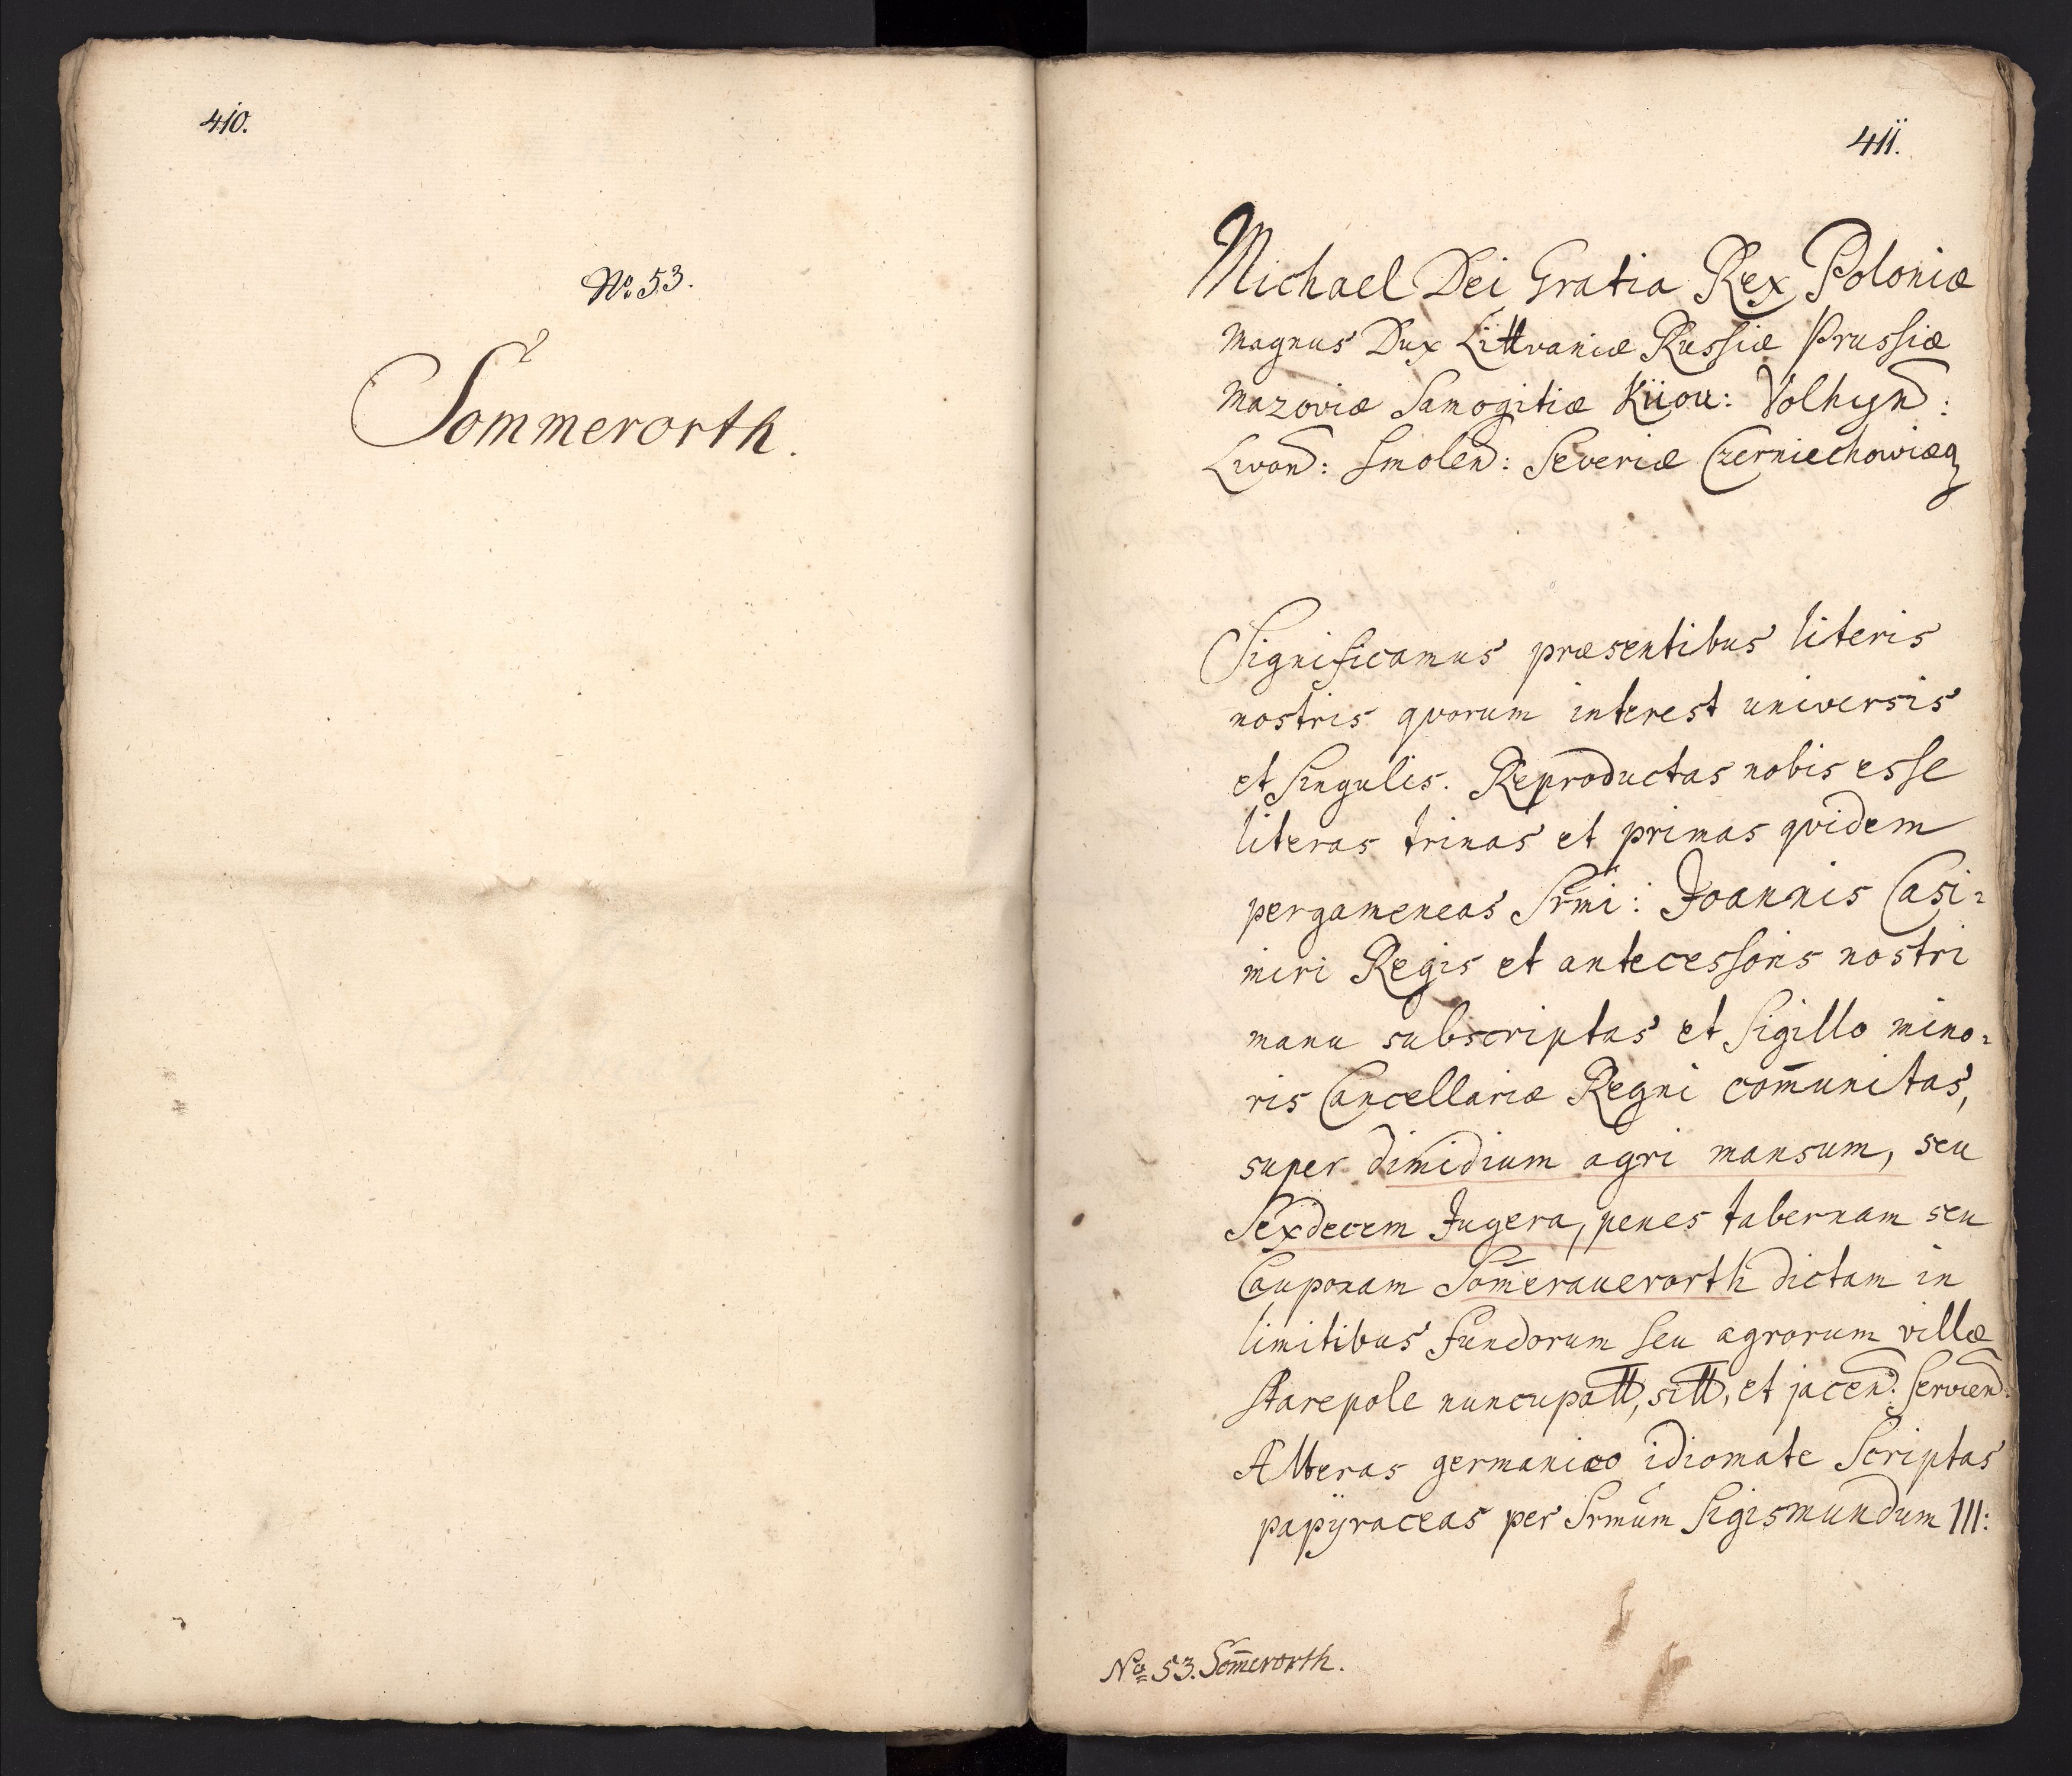 410.
No. 53.
Sommerorth.
411.
Michael Dei Gratia Rex Poloniæ
Magnus Dux Littvaniæ Russiæ Prussiæ
Mazoviæ Samogitiæ Kiiou: Volhÿn:
Livon: Smolen: Severiæ Czerniechowiæq
Significamus præsentibus literis
nostris qvorum interest universis
et Singulis. Reproductas nobis esse
literas trinas et primas qvidem
pergameneas Srmi: Joannis Casi=
miri Regis et antecessoris nostri
manu subscriptas et Sigillo mino=
ris Cancellariæ Regni com̄unitas,
super dimidium agri mansum, seu
Sexdecem Jugera, penes tabernam seu
Cauponam Som̄erauerorth dictam in
limitibus fundorum seu agrorum villæ
Starepole nuncupatt, sitt, et jacen: Servien:
Alteras germanico idiomate Scriptas
papÿraceas per Srmum Sigismundum III:
No 53. Som̄erorth.